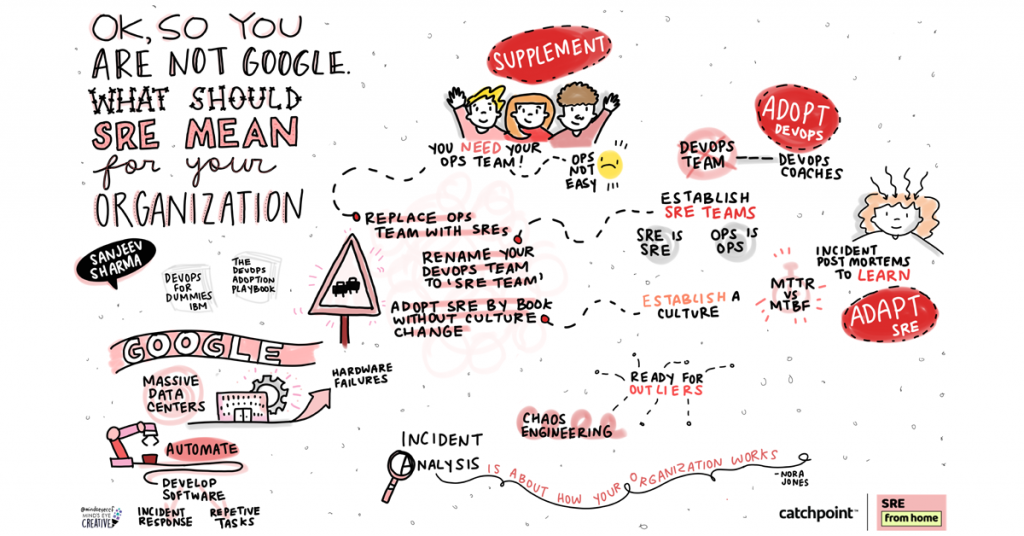 OK, SO YOU
ARE NOT GOOGLE.
WHAT SHOULD
SRE MEAN
for your
ORGANIZATION
SANJEEV
SHARMA
DEVOPS
FOR
DUMMIES
IBM
THE
DEVOPS
ADOPTION
PLAYBOOK
GOOGLE
MASSIVE
DATA
CENTERS
HARDWARE
FAILURES
AUTOMATE
DEVELOP
SOFTWARE
INCIDENT
RESPONSE
REPETIVE
TASKS
SUPPLEMENT
YOU NEED YOUR
OPS TEAM!
OPS
NOT
EASY
REPLACE OPS
TEAM WITH SREs
RENAME YOUR
DEVOPS TEAM
TO 'SRE TEAM'
ADOPT SRE BY BOOK
WITHOUT CULTURE
CHANGE
ADOPT
DEVOPS
DEVOPS
TEAM
DEVOPS
COACHES
ESTABLISH
SRE TEAMS
SRE IS
SRE
OPS IS
OPS
INCIDENT
POST MORTEMS
TO LEARN
MTTR
VS
MTBF
ADAPT
SRE
ESTABLISH A
CULTURE
READY FOR
OUTLIERS
CHAOS
ENGINEERING
INCIDENT
ANALYSIS
IS ABOUT HOW YOUR ORGANIZATION WORKS
-NORA
JONES
@mindseyeccf
MIND'S EYE
CREATIVE
catchpoint™
SRE
from home